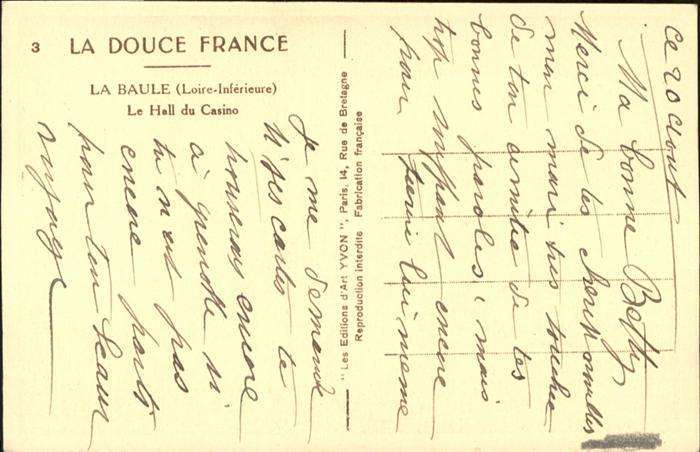 3 LA DOUCE FRANCE
LA BAULE (Loire-Inférieure)
Le Hall du Casino
" Les Editions d'Art YVON ", Paris, 14, Rue de Bretagne
Reproduction interdite Fabrication française
Ce 20 Aout
Ma bonne Betty,
Merci de tes nouvelles
mon mari très touché
de ton amitié de tes
bonnes paroles, mais
trop encore
pour lui meme
Je me demande
si ces cartes te
encore
à si
tu n'es pas
encore partie
pour ton beau
voyage